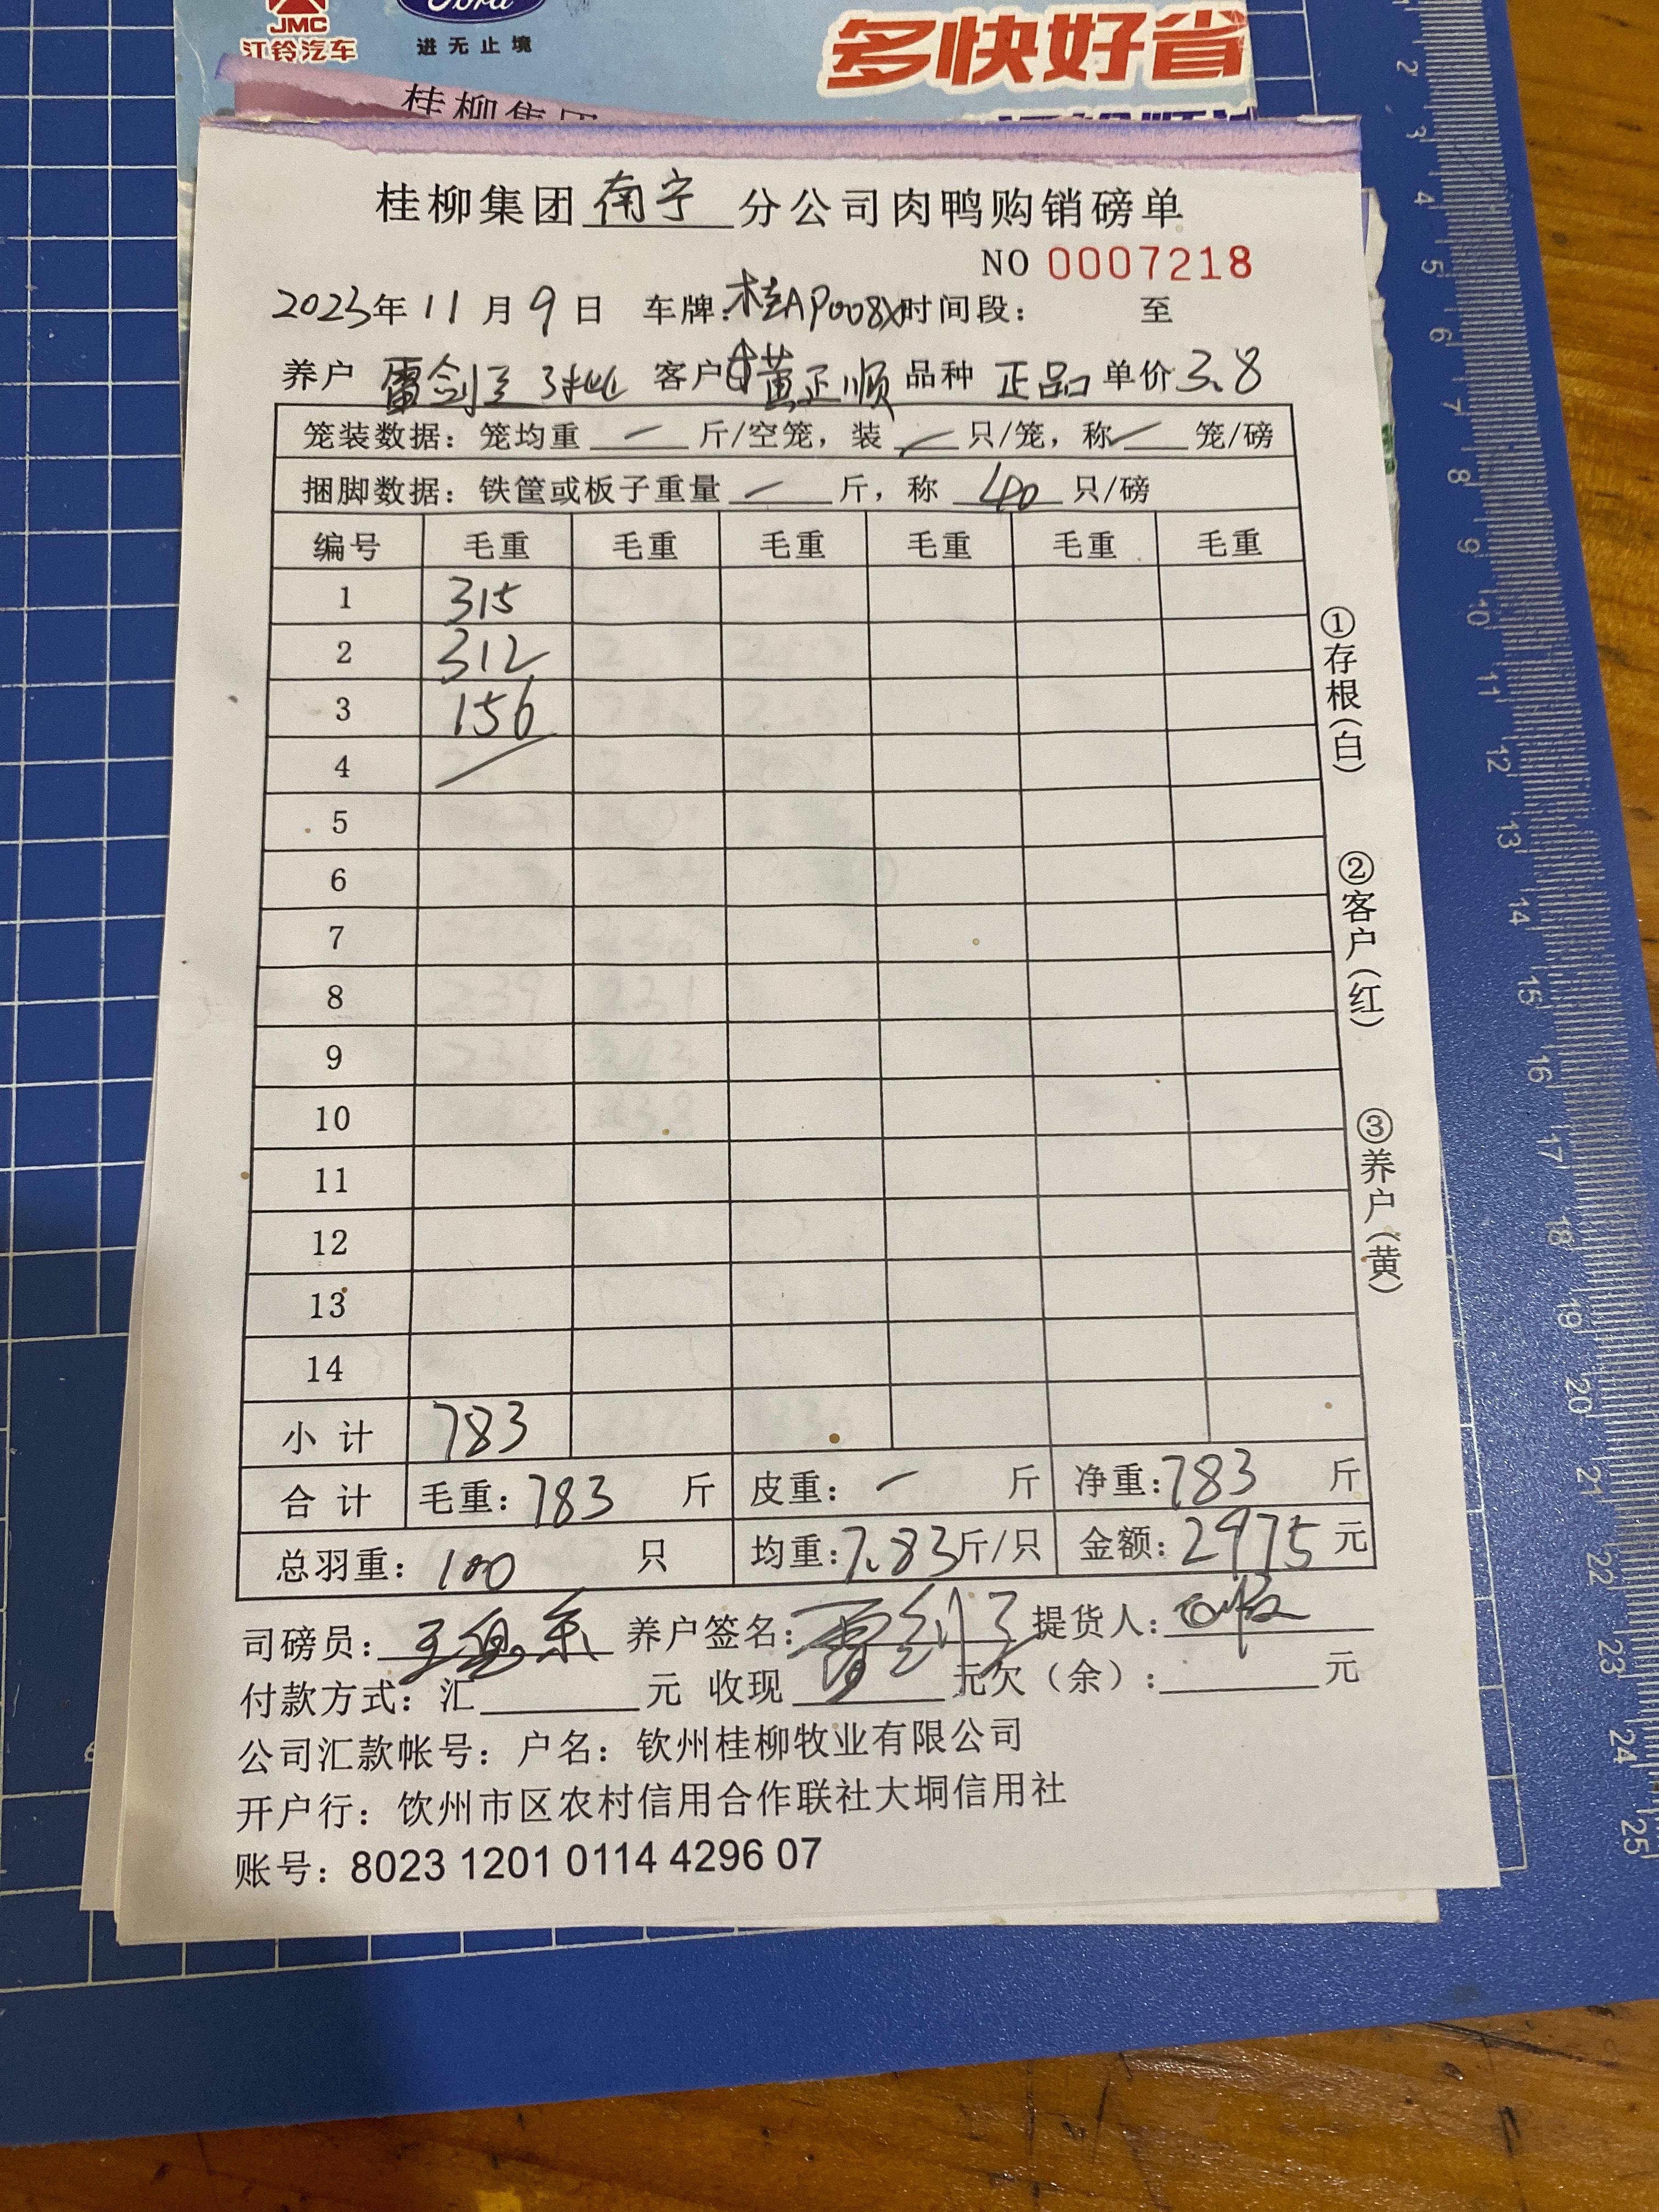 JMC
江铃汽车
Ford
进无止境
多快好省
桂柳集团
桂柳集团 南宁 分公司肉鸭购销磅单
NO 0007218
2023年 11 月 9 日 车牌: 桂AP008X 时间段: 至
养户 雷剑 3批 客户 黄正顺 品种 正品 单价 3.8
笼装数据: 笼均重 — 斤/空笼, 装 — 只/笼, 称 — 笼/磅
捆脚数据: 铁筐或板子重量 — 斤, 称 40 只/磅
编号 毛重 毛重 毛重 毛重 毛重 毛重
1 315
2 312
3 156
4
5
6
7
8
9
10
11
12
13
14
小计 783
合计 毛重: 783 斤 皮重: — 斤 净重: 783 斤
总羽重: 100 只 均重: 7.83 斤/只 金额: 2975 元
司磅员: 养户签名: 提货人:
付款方式: 汇 元 收现 元欠(余): 元
公司汇款帐号: 户名: 钦州桂柳牧业有限公司
开户行: 饮州市区农村信用合作联社大垌信用社
账号: 8023 1201 0114 4296 07
①存根(白)
②客户(红)
③养户(黄)
2
3
4
5
6
7
8
9
10
11
12
13
14
15
16
17
18
19
20
21
22
23
24
25